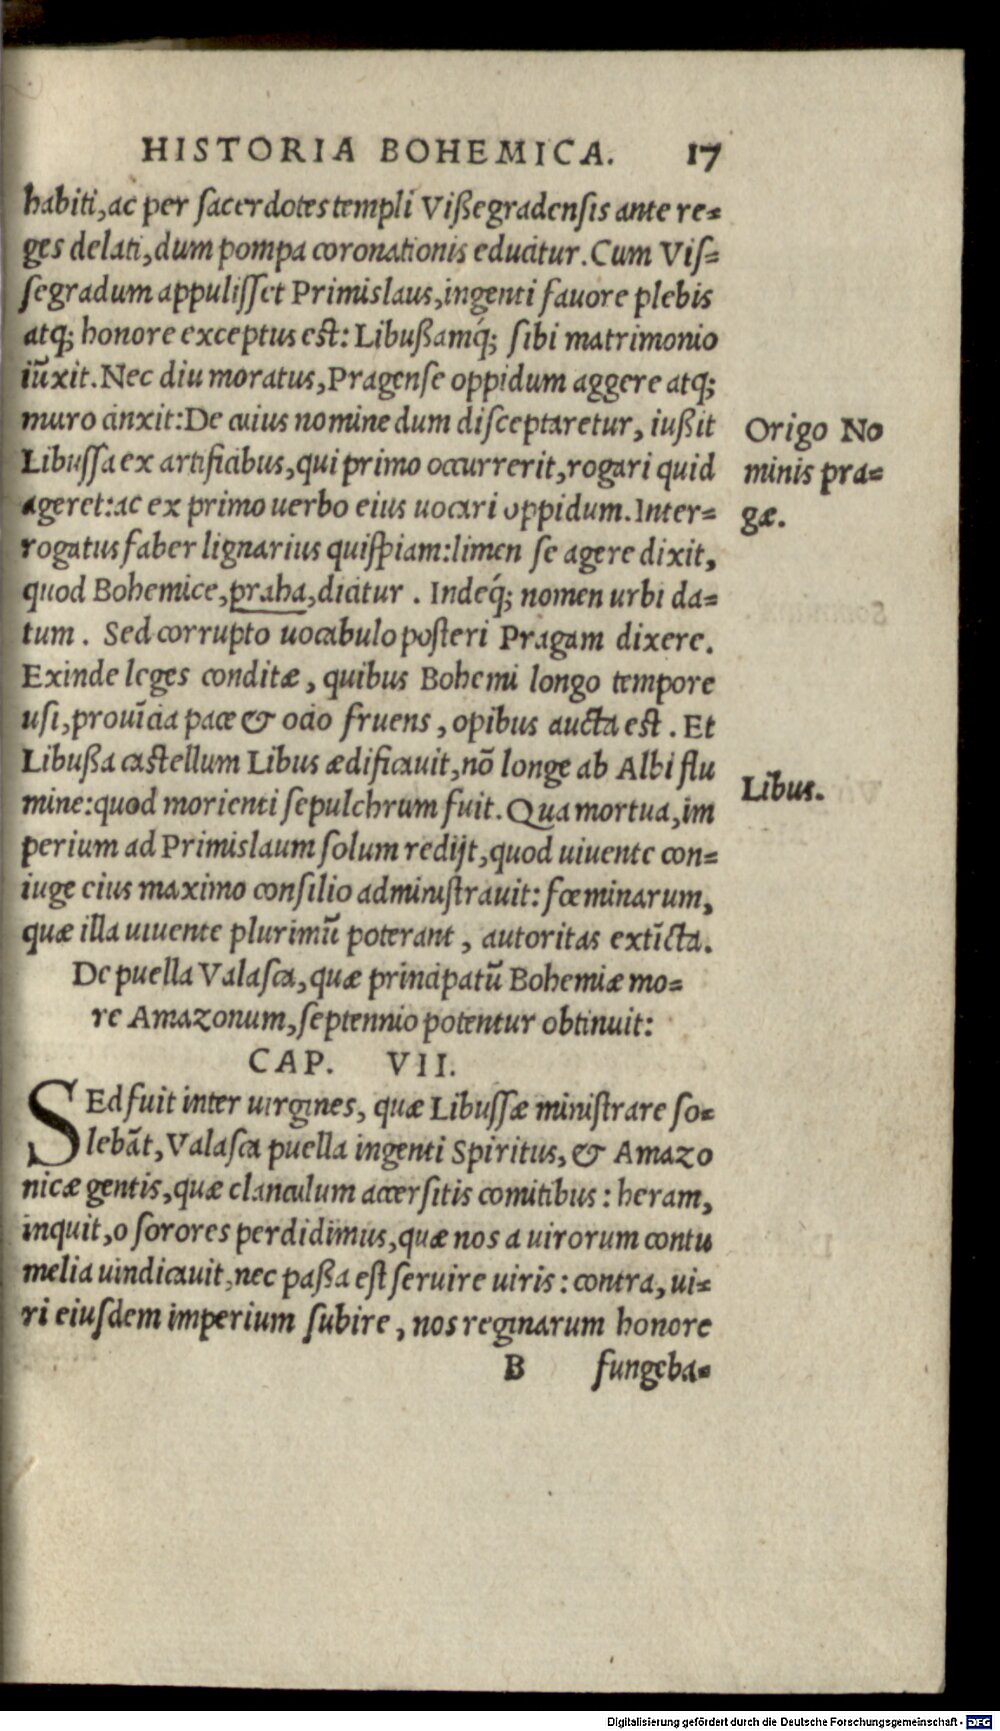 HISTORIA BOHEMICA. 17
habiti, ac per sacerdotes templi Vißegradensis ante re=
ges delati, dum pompa coronationis educitur. Cum Vis=
segradum appulisset Primislaus, ingenti fauore plebis
atq; honore exceptus est: Libußamq́; sibi matrimonio
iūxit. Nec diu moratus, Pragense oppidum aggere atq;
muro cinxit: De cuius nomine dum disceptaretur, iußit
Libussa ex artificibus, qui primo occurrerit, rogari quid
ageret: ac ex primo uerbo eius uocari oppidum. Inter=
rogatus faber lignarius quispiam: limen se agere dixit,
quod Bohemice, praha, dicitur . Indeq́; nomen urbi da=
tum . Sed corrupto uocabulo posteri Pragam dixere.
Exinde leges conditæ, quibus Bohemi longo tempore
usi, prouīcia pace & ocio fruens, opibus aucta est . Et
Libußa castellum Libus ædificauit, nō longe ab Albi flu
mine: quod morienti sepulchrum fuit. Qua mortua, im
perium ad Primislaum solum redijt, quod uiuente con=
iuge eius maximo consilio administrauit: fœminarum,
quæ illa uiuente plurimū poterant, autoritas extīcta.
De puella Valasca, quæ principatū Bohemiæ mo=
re Amazonum, septennio potentur obtinuit:
CAP. VII.
SEd fuit inter uirgines, quæ Libussæ ministrare so=
lebāt, Valasca puella ingenti Spiritus, & Amazo
nicæ gentis, quæ clanculum accersitis comitibus: heram,
inquit, o sorores perdidimus, quæ nos a uirorum contu
melia uindicauit, nec paßa est seruire uiris: contra, ui=
ri eiusdem imperium subire, nos reginarum honore
B fungeba=
Origo No
minis pra=
gæ.
Libus.
Digitalisierung gefördert durch die Deutsche Forschungsgemeinschaft - DFG